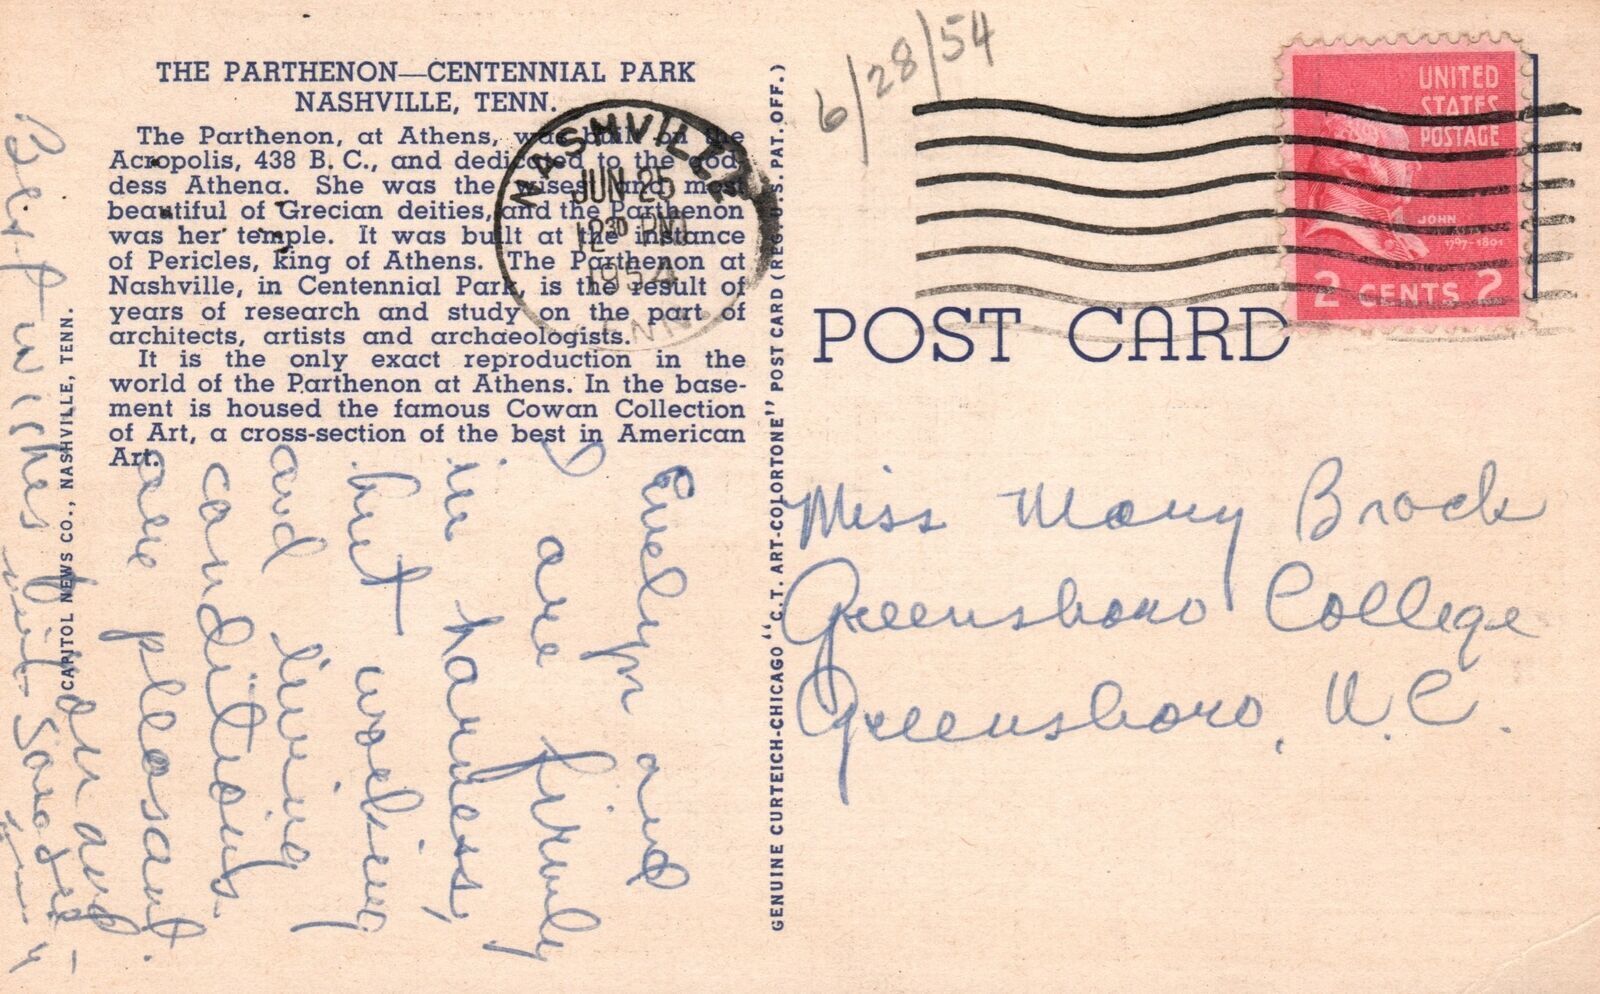 THE PARTHENON—CENTENNIAL PARK
NASHVILLE, TENN.
The Parthenon, at Athens, was built on the
Acropolis, 438 B. C., and dedicated to the god-
dess Athena. She was the wisest and most
beautiful of Grecian deities, and the Parthenon
was her temple. It was built at the instance
of Pericles, king of Athens. The Parthenon at
Nashville, in Centennial Park, is the result of
years of research and study on the part of
architects, artists and archaeologists.
It is the only exact reproduction in the
world of the Parthenon at Athens. In the base-
ment is housed the famous Cowan Collection
of Art, a cross-section of the best in American
Art.
CAPITOL NEWS CO., NASHVILLE, TENN.
GENUINE CURTEICH-CHICAGO "C.T. ART-COLORTONE" POST CARD (REG. U.S. PAT. OFF.)
NASHVILLE
JUN 25
12 30 PM
1954
TENN.
6/28/54
UNITED
STATES
POSTAGE
JOHN
1797-1801
2 CENTS 2
POST CARD
Miss Mary Brock
Greensboro College
Greensboro, N.C.
Evelyn and
I are firmly
in harness,
but working
and living
conditions
are pleasant.
Best wishes